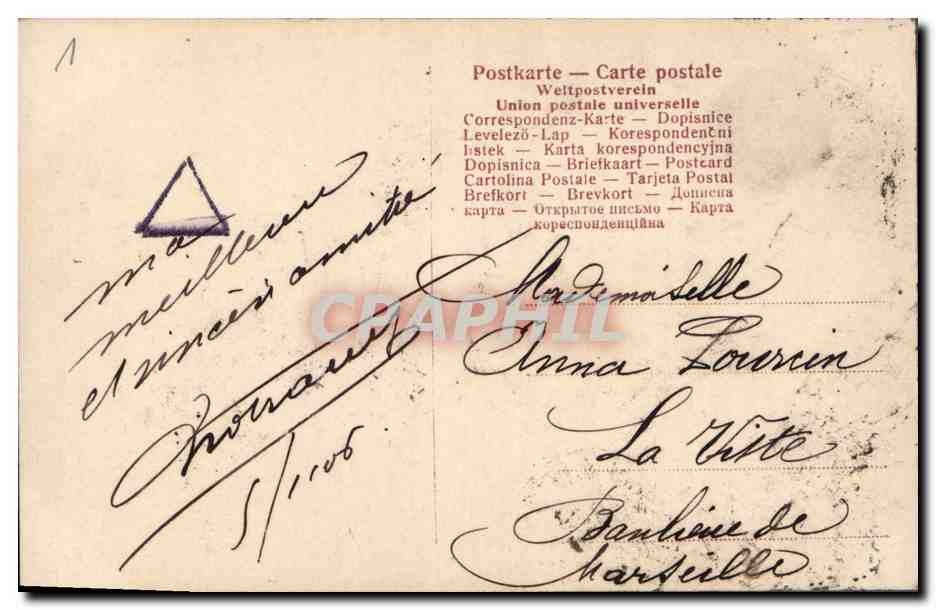 1
Postkarte — Carte postale
Weltpostverein
Union postale universelle
Correspondenz-Karte — Dopisnice
Levelező-Lap — Korespondenční
lístek — Karta korespondencyjna
Dopisnica — Briefkaart — Postcard
Cartolina Postale — Tarjeta Postal
Brefkort — Brevkort — Дописна
карта — Открытое письмо — Карта
кореспонденційна
ma
meilleure
et sincère amitié
5/1 06
CPARPHIL
Mademoiselle
Anna Lourcin
La Viste
Banlieue de
Marseille